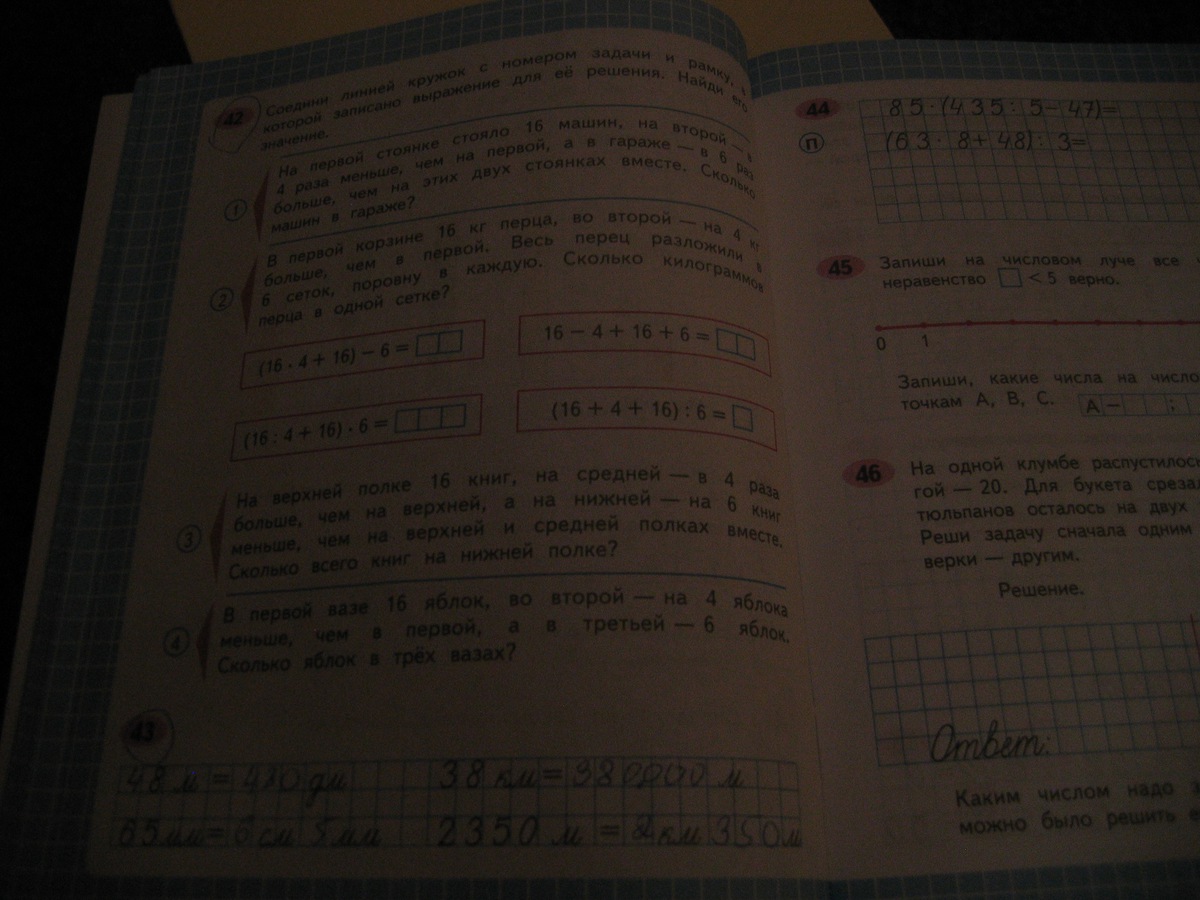 42
Соедини линией кружок с номером задачи и рамку, в
которой записано выражение для её решения. Найди его
значение.
1
На первой стоянке стояло 16 машин, на второй — в
4 раза меньше, чем на первой, а в гараже — в 6 раз
больше, чем на этих двух стоянках вместе. Сколько
машин в гараже?
2
В первой корзине 16 кг перца, во второй — на 4 кг
больше, чем в первой. Весь перец разложили в
6 сеток, поровну в каждую. Сколько килограммов
перца в одной сетке?
(16 · 4 + 16) − 6 =
16 − 4 + 16 + 6 =
(16 : 4 + 16) · 6 =
(16 + 4 + 16) : 6 =
3
На верхней полке 16 книг, на средней — в 4 раза
больше, чем на верхней, а на нижней — на 6 книг
меньше, чем на верхней и средней полках вместе.
Сколько всего книг на нижней полке?
4
В первой вазе 16 яблок, во второй — на 4 яблока
меньше, чем в первой, а в третьей — 6 яблок.
Сколько яблок в трёх вазах?
43
48 м = 480 дм 38 км = м
65 мм = 6 см 5 мм 2350 м = 2 км 350 м
44
85 · (435 : 5 − 47) =
П
(63 · 8 + 48) : 3 =
45
Запиши на числовом луче все
неравенство < 5 верно.
0 1
Запиши, какие числа на
точкам А, В, С. А — ;
46
На одной клумбе
гой — 20. Для букета
тюльпанов осталось на двух
Реши задачу сначала одним
верки — другим.
Решение.
Ответ:
Каким числом надо
можно было решить